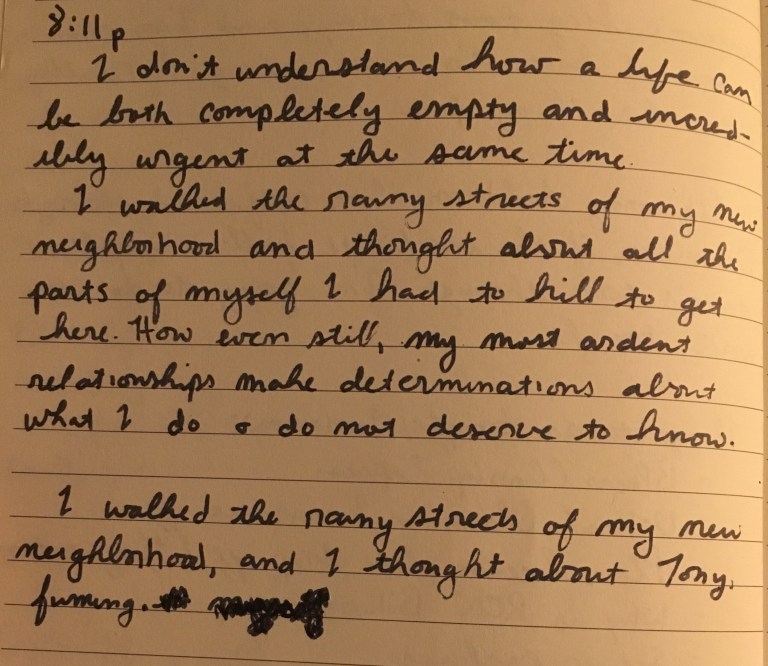 8:11p
I don't understand how a life can
be both completely empty and incred-
ibly urgent at the same time.
I walked the rainy streets of my new
neighborhood and thought about all the
parts of myself I had to kill to get
here. How even still, my most ardent
relationships make determinations about
what I do & do not deserve to know.
I walked the rainy streets of my new
neighborhood, and I thought about Tony,
fuming.